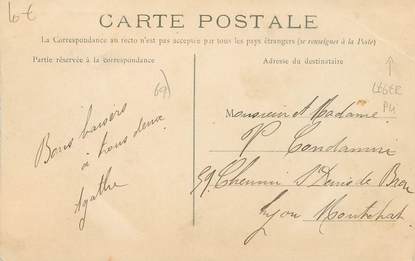 6€
CARTE POSTALE
La Correspondance au recto n'est pas acceptée par tous les pays étrangers (se renseigner à la Poste)
Partie réservée à la correspondance
Adresse du destinataire
69)
LÉGER
PLI
Bons baisers
à tous deux
Agathe
Monsieur et Madame
P Condamin
59 Chemin St Denis de Bron
Lyon Montchat